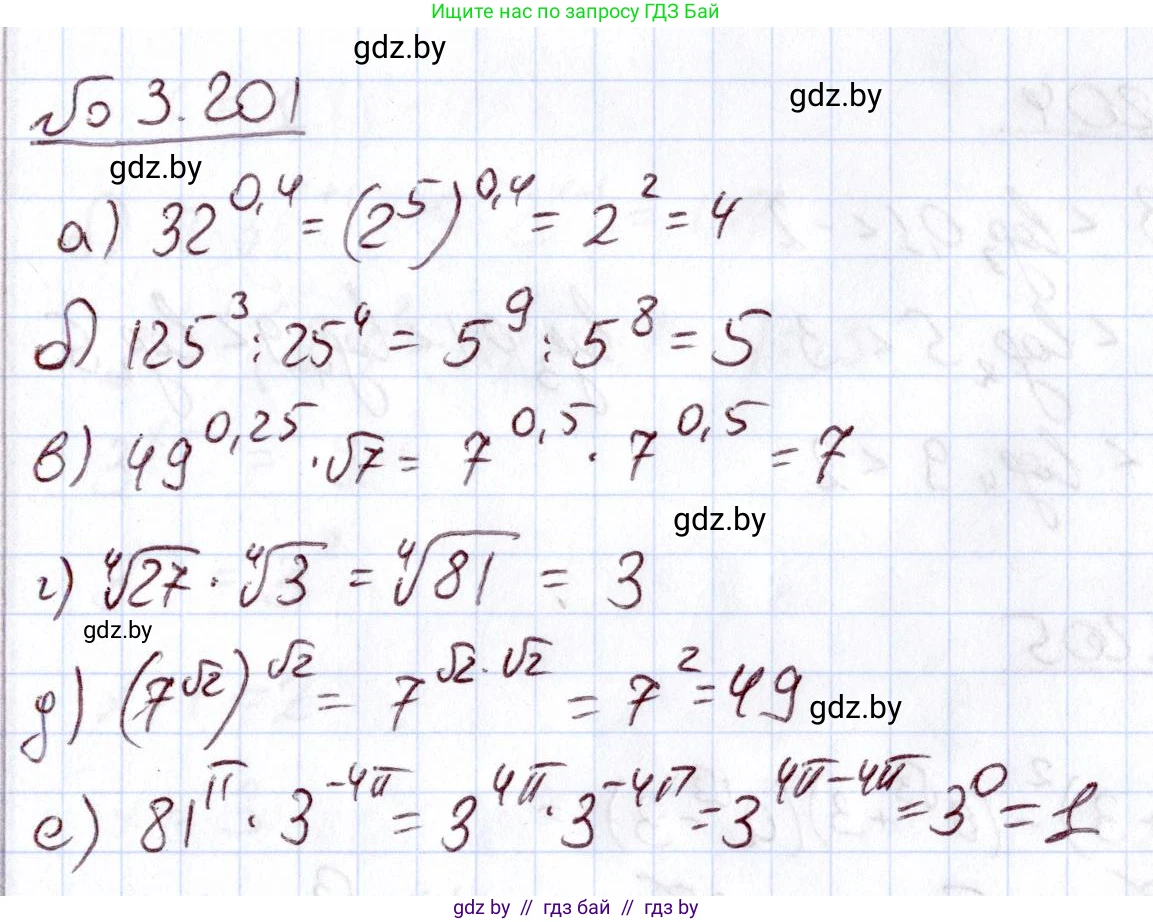 Ищите нас по запросу ГДЗ Бай
gdz.by
№ 3.201
gdz.by
gdz.by
а) 32^0,4 = (2^5)^0,4 = 2^2 = 4
б) 125^3 : 25^4 = 5^9 : 5^8 = 5
в) 49^0,25 · √7 = 7^0,5 · 7^0,5 = 7
gdz.by
г) ⁴√27 · ⁴√3 = ⁴√81 = 3
gdz.by
д) (7^√2)^√2 = 7^√2·√2 = 7^2 = 49
gdz.by
е) 81^π · 3^-4π = 3^4π · 3^-4π = 3^4π-4π = 3^0 = 1
gdz by // гдз бай // gdz by